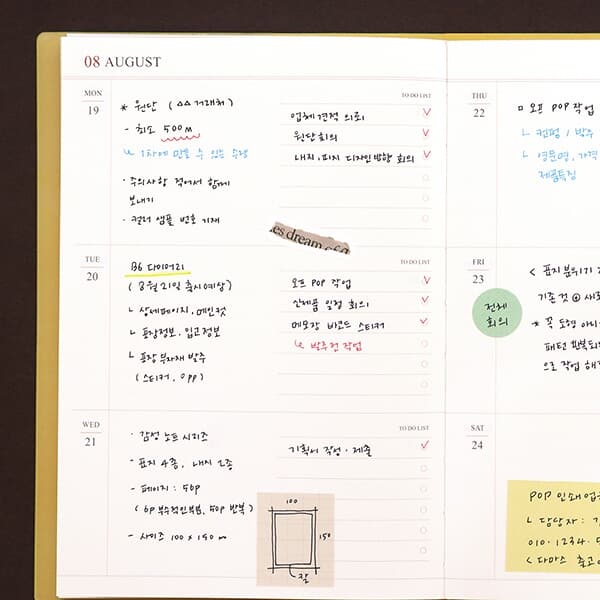 08 AUGUST
MON
19
* 원단 (△△거래처)
- 최소 500m
↳ 1차에 만들 수 있는 수량
· 주의사항 적어서 함께
보내기
· 컬러 샘플 번호 기재
TO DO LIST
업체 견적 의뢰
원단회의
내지, 표지 디자인 방향 회의
es dream of a
TUE
20
B6 다이어리
(8월 21일 출시예상)
↳ 상세페이지, 메인컷
↳ 포장정보, 입고정보
↳ 포장 부자재 발주
(스티커, opp)
TO DO LIST
오프 POP 작업
신제품 일정 회의
메모장 바코드 스티커
↳ 발주전 작업
WED
21
· 감성 노트 시리즈
- 표지 4종, 내지 2종
- 페이지 : 56p
(6p 부수적인 부분, 50p 반복)
- 사이즈 100 x 150 m
TO DO LIST
기획서 작성 · 제출
100
150
잘
THU
22
□ 오프 POP 작업
↳ 컨펌 / 발주
↳ 영문명, 가격
제품특징
FRI
23
전체
회의
< 표지 분위기
기존 것 @ 새로
* 꼭 도형 아니
패턴 반복되
으로 작업 해
SAT
24
POP 인쇄업
↳ 담당자 :
010. 1234. 5